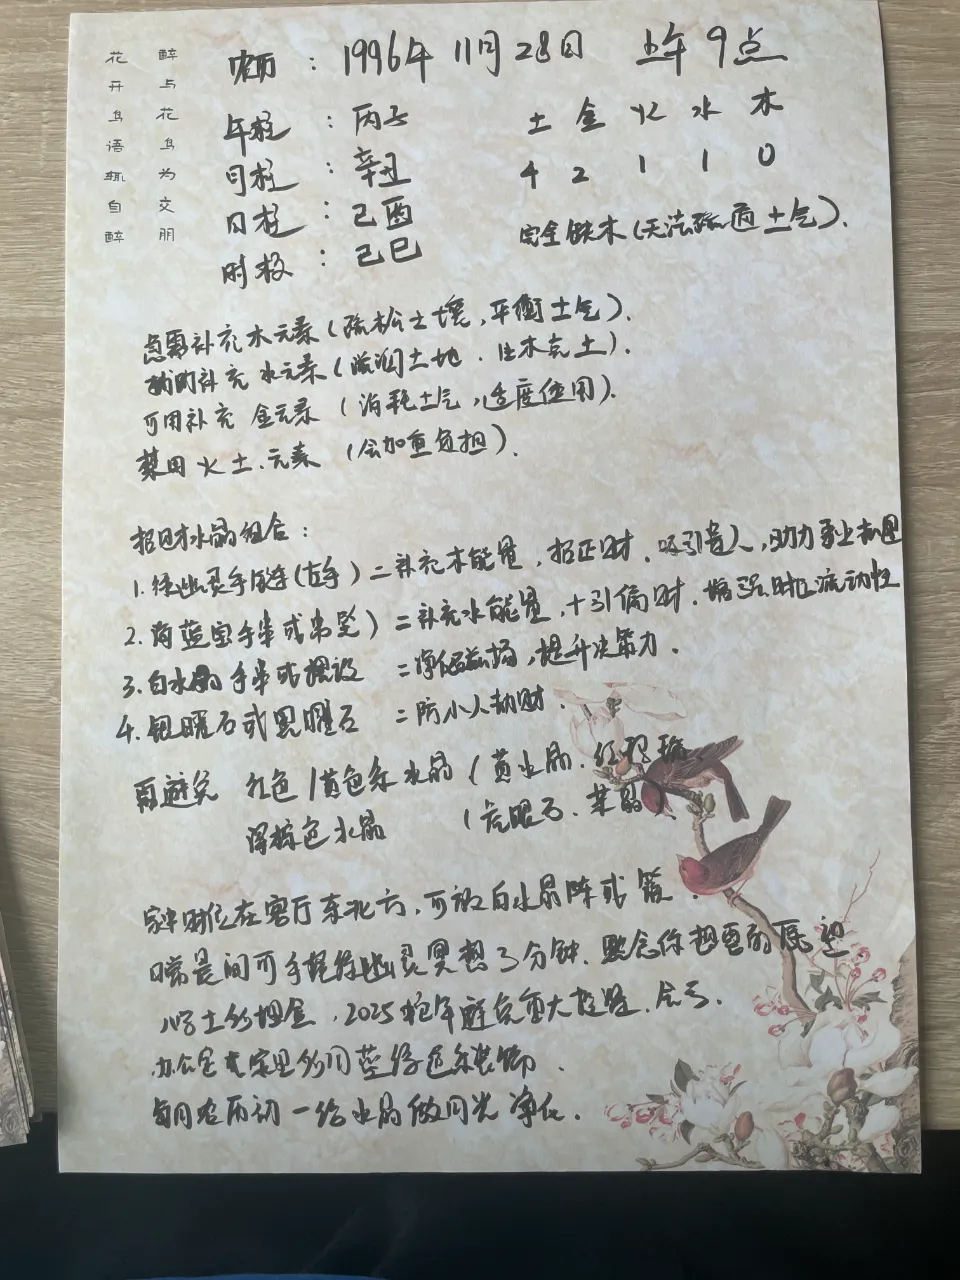 醉与花鸟为交朋
花开鸟语辄自醉
农历：1996年11月28日 上午9点
年柱：丙子 土金火水木
月柱：辛丑 4 2 1 1 0
日柱：己酉
时柱：己巳
完全缺木(无法疏通土气).
急需补充木元素(疏松土壤,平衡土气).
辅助补充水元素(滋润土地.生木克土).
可用补充金元素(消耗土气,适度使用).
禁用火土.元素(会加重负担).
招财水晶组合:
1.绿幽灵手链(左手)=补充木能量,招正财.吸引贵人,助力事业
2.海蓝宝手串或吊坠)=补充水能量,十引偏财.增强财运流动性
3.白水晶手串或摆设=净化磁场,提升决策力.
4.银曜石或黑曜石=防小人劫财.
要避免 红色/黄色系水晶(黄水晶.红玛瑙
深棕色水晶(虎眼石.茶晶
家中财位在客厅东北方,可放白水晶阵或
晨间可手握绿幽灵冥想3分钟.默念你想要的愿望
2025蛇年避免重大投资.
办公室或家里多用蓝绿色系装饰.
每月农历初一给水晶做月光净化.